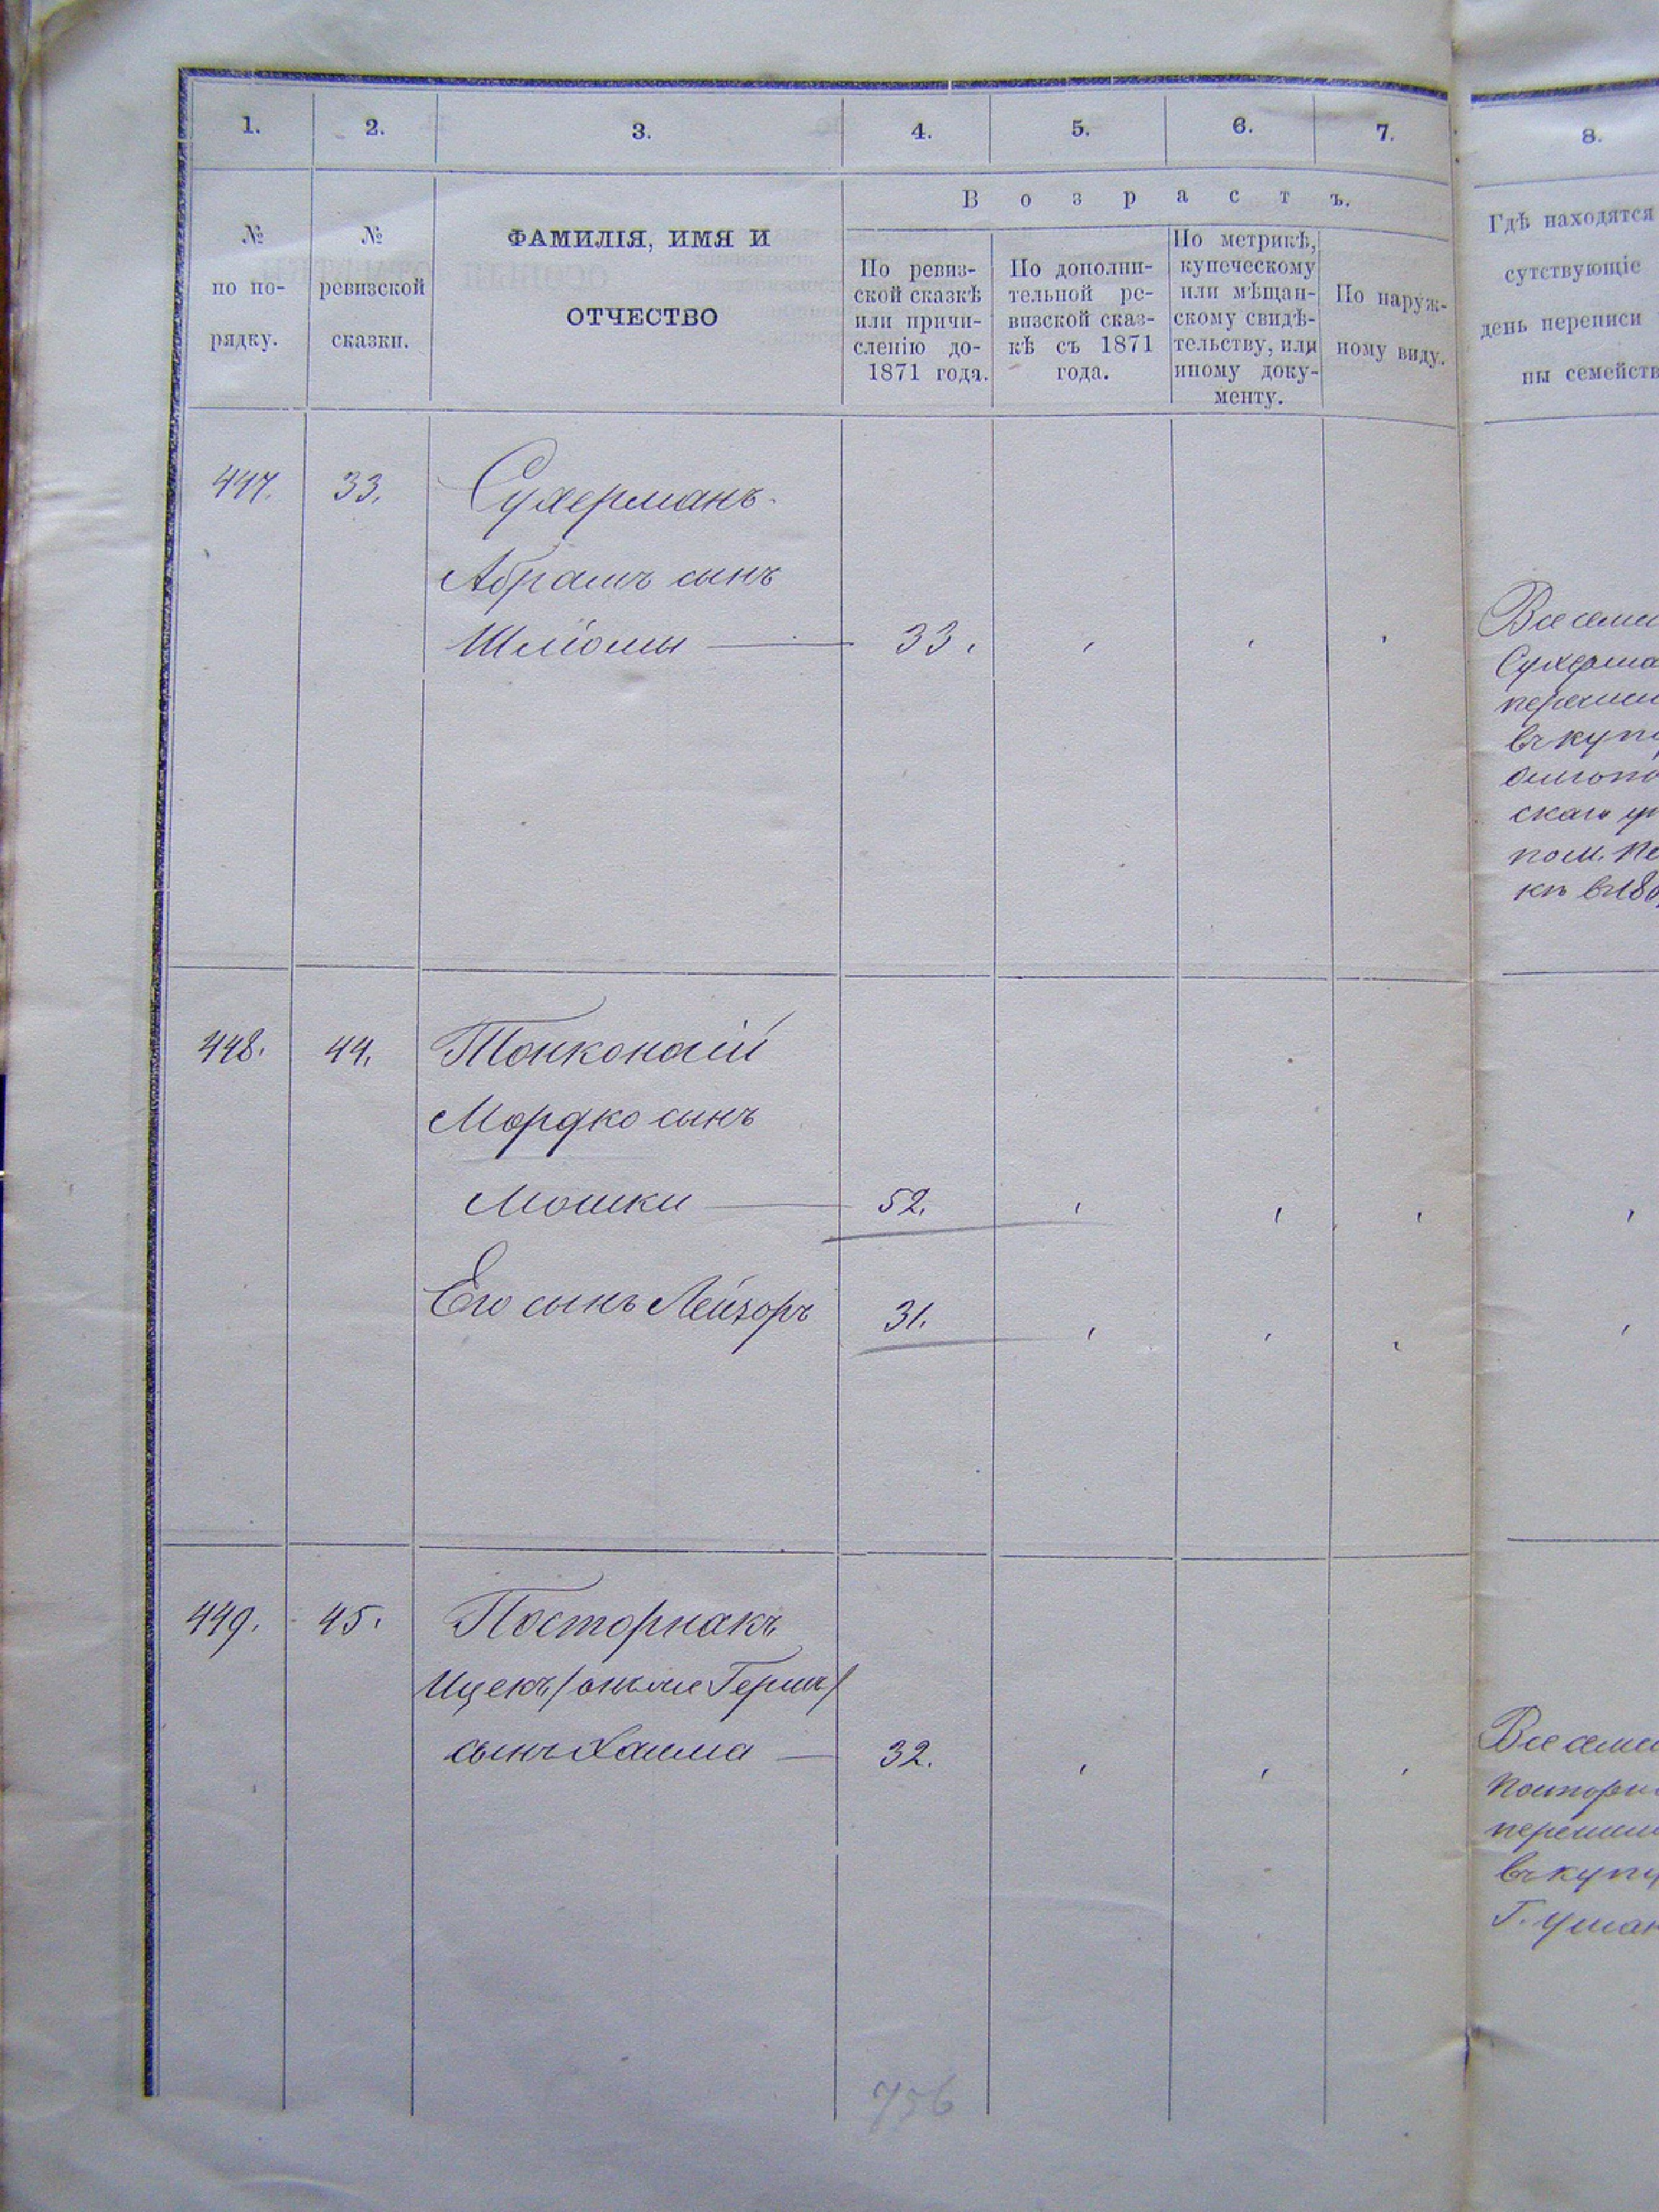 1. 2. 3. 4. 5. 6. 7. 8.
В о з р а с т ъ.
№
по по-
рядку.
№
ревизской
сказки.
ФАМИЛІЯ, ИМЯ И
ОТЧЕСТВО
По ревиз-
ской сказкѣ
или причи-
сленію до-
1871 года.
По дополни-
тельной ре-
визской сказ-
кѣ съ 1871
года.
По метрикѣ,
купеческому
или мѣщан-
скому свидѣ-
тельству, или
иному доку-
менту.
По наруж-
ному виду.
Гдѣ находятся
сутствующіе
день переписи
ны семейств
447. 33. Сухерманъ
Абрамъ сынъ
Шліомы — 33.
Все семе
Сухерма
перечис
въ куп
ольгопо
скаго
пом.
448. 44. Тонконогій
Мордко сынъ
Мошки — 52.
Его сынъ Лейзоръ 31.
449. 45. Посторнакъ
Ицекъ /онъ же Герш/
сынъ Хаима — 32.
Все семе
Посторн
перечис
въ купц
г. Уман
756